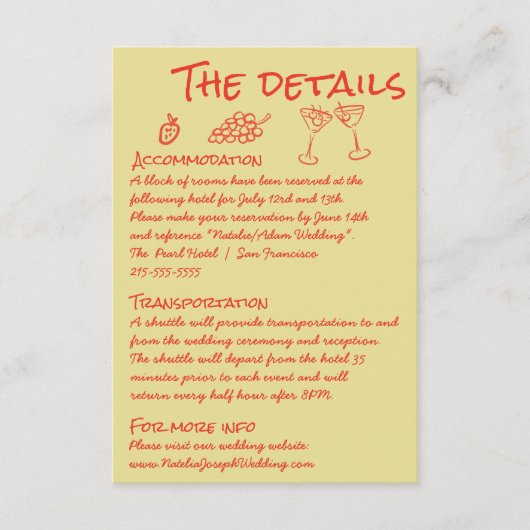 The details
Accommodation
A block of rooms have been reserved at the
following hotel for July 12rd and 13th.
Please make your reservation by June 14th
and reference "Natalie/Adam Wedding".
The Pearl Hotel | San Francisco
215-555-5555
Transportation
A shuttle will provide transportation to and
from the wedding ceremony and reception.
The shuttle will depart from the hotel 35
minutes prior to each event and will
return every half hour after 8PM.
For more info
Please visit our wedding website:
www.NateliaJosephWedding.com